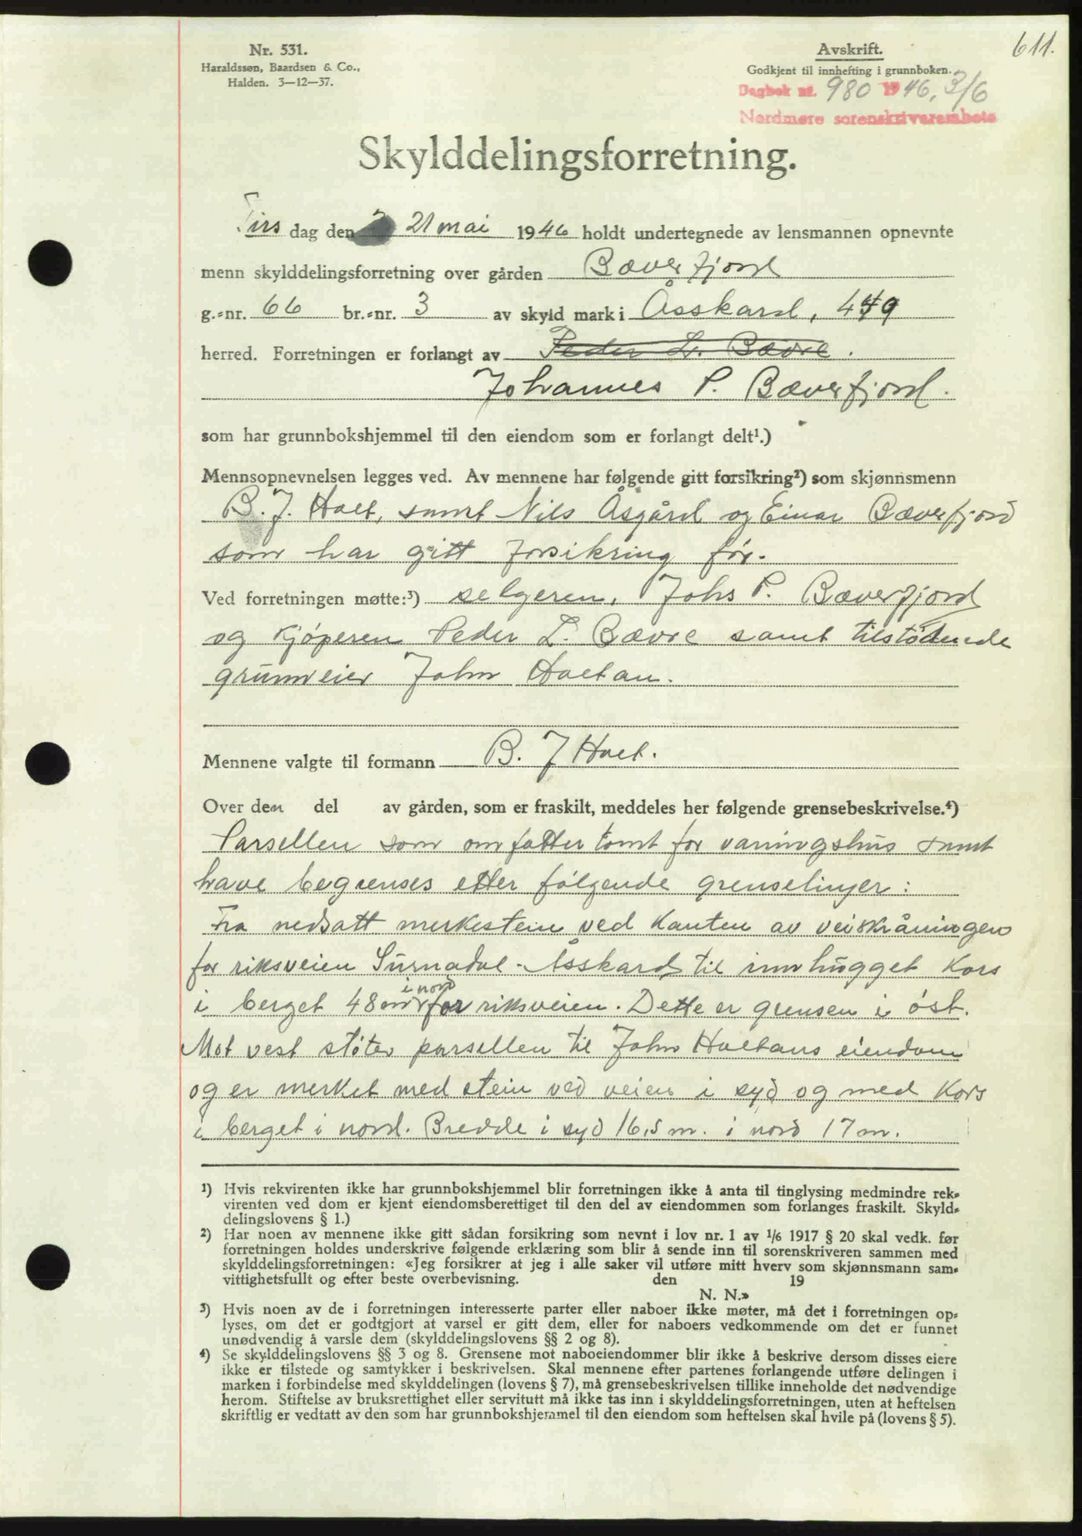 611.
Nr. 531.
Haraldssøn, Baardsen & Co.,
Halden. 3—12—37.
Avskrift.
Godkjent til innhefting i grunnboken.
Dagbok nr. 980 1946, 3/6
Nordmøre sorenskriverembete
Skylddelingsforretning.
Tirs dag den 21 mai 1946 holdt undertegnede av lensmannen opnevnte
menn skylddelingsforretning over gården Bæverfjord
g.-nr. 66 br.-nr. 3 av skyld mark i Åsskard, 4.49
herred. Forretningen er forlangt av Peder L. Bævre.
Johannes P. Bæverfjord.
som har grunnbokshjemmel til den eiendom som er forlangt delt¹.)
Mennsopnevnelsen legges ved. Av mennene har følgende gitt forsikring²) som skjønnsmenn
B. J. Holt, samt Nils Åsgård og Einar Bæverfjord
som har gitt forsikring før.
Ved forretningen møtte:³) selgeren, Johs P. Bæverfjord
og kjøperen Peder L. Bævre samt tilstøtende
grunneier John Holtan.
Mennene valgte til formann B. J Holt.
Over den del av gården, som er fraskilt, meddeles her følgende grensebeskrivelse.⁴)
Parsellen som omfatter tomt for våningshus samt
have begrenses etter følgende grenselinjer:
Fra nedsatt merkestein ved kanten av veiskråningen
for riksveien Surnadal - Åsskard til innhugget kors
i berget 48 m i nord for riksveien. Dette er grensen i øst.
Mot vest støter parsellen til John Holtans eiendom
og er merket med stein ved veien i syd og med kors
i berget i nord. Bredde i syd 16,5 m. i nord 17 m.
¹) Hvis rekvirenten ikke har grunnbokshjemmel blir forretningen ikke å anta til tinglysing medmindre rek-
virenten ved dom er kjent eiendomsberettiget til den del av eiendommen som forlanges fraskilt. Skyld-
delingslovens § 1.)
²) Har noen av mennene ikke gitt sådan forsikring som nevnt i lov nr. 1 av 1/6 1917 § 20 skal vedk. før
forretningen holdes underskrive følgende erklæring som blir å sende inn til sorenskriveren sammen med
skylddelingsforretningen: «Jeg forsikrer at jeg i alle saker vil utføre mitt hverv som skjønnsmann sam-
vittighetsfullt og efter beste overbevisning. den 19
N. N.»
³) Hvis noen av de i forretningen interesserte parter eller naboer ikke møter, må det i forretningen op-
lyses, om det er godtgjort at varsel er gitt dem, eller for naboers vedkommende om det er funnet
unødvendig å varsle dem (skylddelingslovens §§ 2 og 8).
⁴) Se skylddelingslovens §§ 3 og 8. Grensene mot naboeiendommer blir ikke å beskrive dersom disses eiere
ikke er tilstede og samtykker i beskrivelsen. Skal mennene efter partenes forlangende utføre delingen i
marken i forbindelse med skylddelingen (lovens § 7), må grensebeskrivelsen tillike inneholde det nødvendige
herom. Stiftelse av bruksrettighet eller servitutt må ikke tas inn i skylddelingsforretningen, uten at heftelsen
skriftlig er vedtatt av den som har grunnbokshjemmel til den eiendom som heftelsen skal hvile på (lovens § 5).